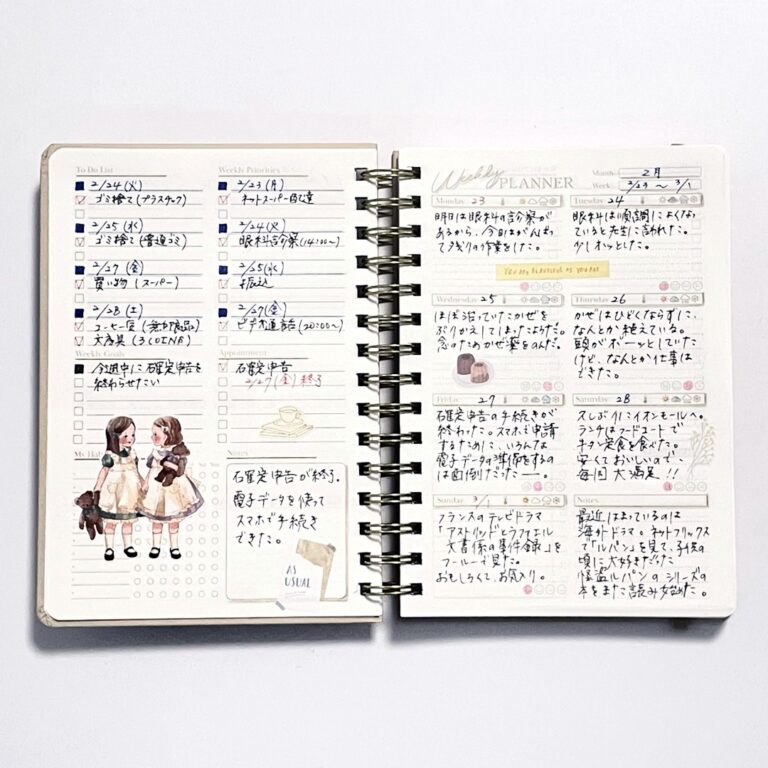 To Do List
2/24(火)
ゴミ捨て(プラスチック)
2/25(水)
ゴミ捨て(普通ゴミ)
2/27(金)
買い物(スーパー)
2/28(土)
コーヒー豆(無印良品)
文房具(3COINS)
Weekly Goals
今週中に確定申告を
終わらせたい
Weekly Priorities
2/23(月)
ネットスーパー配達
2/24(火)
眼科診察(14:00〜)
2/25(水)
振込
2/27(金)
ビデオ通話(20:00〜)
Appointment
確定申告
2/27(金)終了
Notes
確定申告が終了。
電子データを使って
スマホで手続き
できた。
AS
USUAL
Weekly
PLANNER
Month 2月
Week 2/23 〜 3/1
Monday 23
明日は眼科の診察が
あるから、今日はがんばっ
て夕残りの作業をした。
Tuesday 24
眼科は順調によくなっ
ていると先生に言われた。
少しホッとした。
YOU ARE BEAUTIFUL AS YOU ARE
Wednesday 25
ほぼ治っていたかぜを
ぶりかえしてしまったようだ。
念のためかぜ薬をのんだ。
Thursday 26
かぜはひどくならずに、
なんとか終えている。
頭がボーッとしていた
けど、なんとか仕事は
できた。
Friday 27
確定申告の手続きが
終わった。スマホで申請
するために、いろんな
電子データの準備をするの
は面倒だったー。
Saturday 28
久しぶりにイオンモールへ。
ランチはフードコートで
牛タン定食を食べた。
安くておいしいので、
毎回大満足!!
Sunday 3/1
フランスのテレビドラマ
「アストリッドとラファエル
文書係の事件録」を
フールーで見た。
おもしろくて、お気入り。
Notes
最近はまっているのは
海外ドラマ。ネットフリックス
で「ルパン」を見て、子供の
頃に大好きだった
怪盗ルパンのシリーズの
本をまた読み始めた。